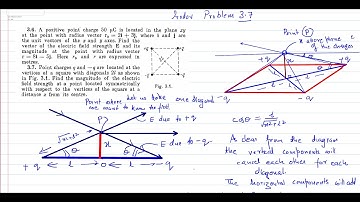 Irodov Problem 3.7
3.6. A positive point charge 50 μC is located in the plane xy
at the point with radius vector r₀ = 2i + 3j, where i and j are
the unit vectors of the x and y axes. Find the
vector of the electric field strength E and its
magnitude at the point with radius vector
r = 8i — 5j. Here r₀ and r are expressed in
metres.
3.7. Point charges q and —q are located at the
vertices of a square with diagonals 2l as shown
in Fig. 3.1. Find the magnitude of the electric
field strength at a point located symmetrically
with respect to the vertices of the square at a
distance x from its centre.
Fig. 3.1.
Point (P)
x above plane
of the charges
-q
+q
+q
-q
Point where
Let us take one diagonal
we need to know the field
P
E due to +q
E due to -q
x
θ
θ
+q
l
O
l
-q
cosθ =
l
A clear from the diagram
the vertical components will
cancel each other for each
diagonal.
The horizontal components will add